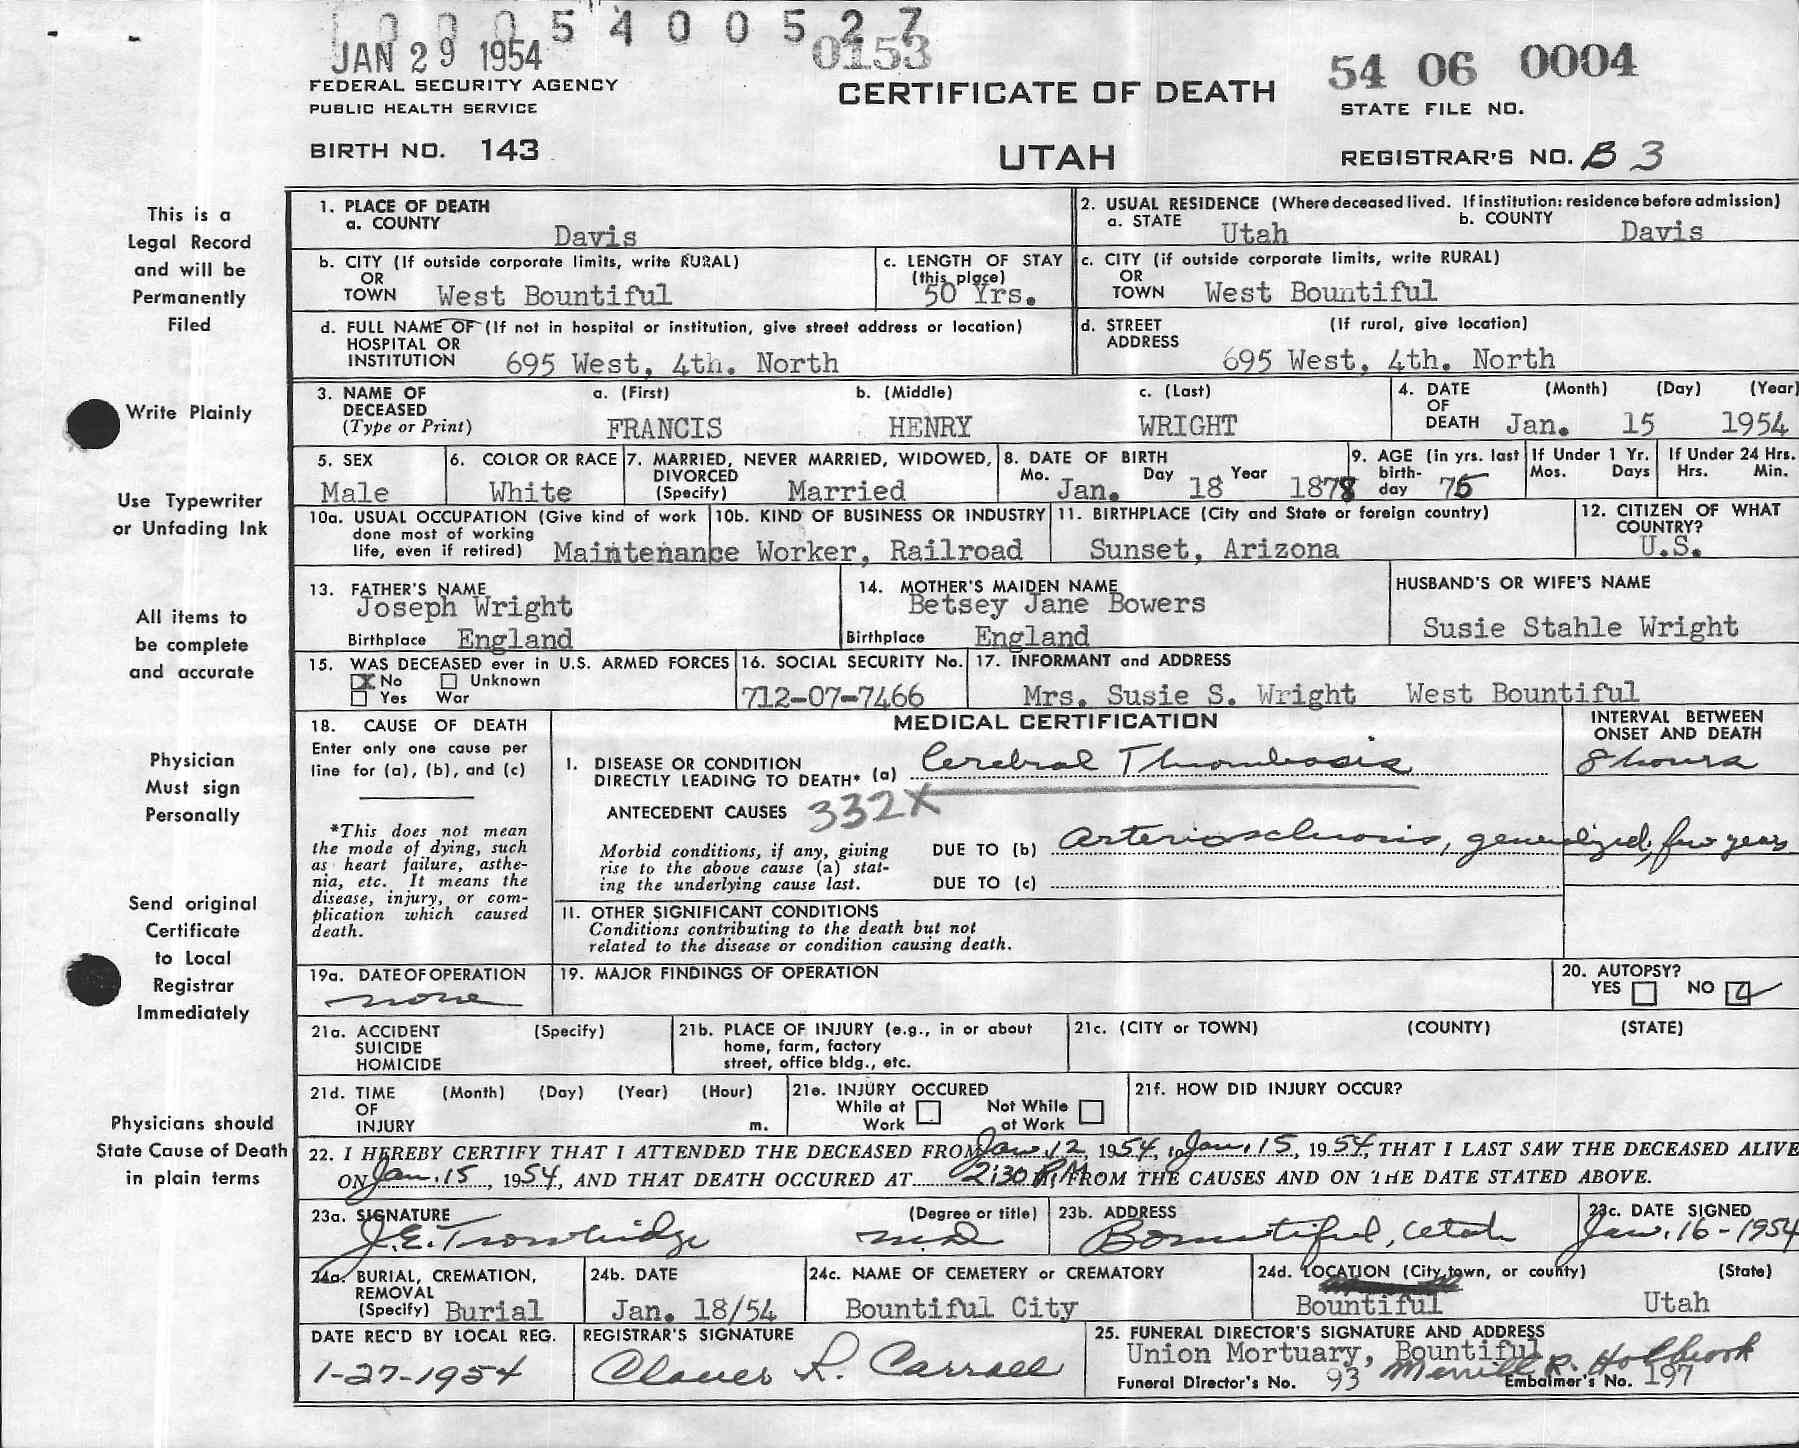 1 0 0 0 5 4 0 0 5 2 7
JAN 29 1954
0153
54 06 0004
FEDERAL SECURITY AGENCY
PUBLIC HEALTH SERVICE
CERTIFICATE OF DEATH
STATE FILE NO.
BIRTH NO. 143
UTAH
REGISTRAR'S NO. B 3
This is a
Legal Record
and will be
Permanently
Filed
Write Plainly
Use Typewriter
or Unfading Ink
All items to
be complete
and accurate
Physician
Must sign
Personally
Send original
Certificate
to Local
Registrar
Immediately
Physicians should
State Cause of Death
in plain terms
1. PLACE OF DEATH
a. COUNTY
Davis
2. USUAL RESIDENCE (Where deceased lived. If institution: residence before admission)
a. STATE Utah b. COUNTY Davis
b. CITY (If outside corporate limits, write RURAL)
OR
TOWN West Bountiful
c. LENGTH OF STAY
(this place)
50 Yrs.
c. CITY (if outside corporate limits, write RURAL)
OR
TOWN West Bountiful
d. FULL NAME OF (If not in hospital or institution, give street address or location)
HOSPITAL OR
INSTITUTION 695 West, 4th. North
d. STREET (If rural, give location)
ADDRESS
695 West, 4th. North
3. NAME OF a. (First) b. (Middle) c. (Last)
DECEASED
(Type or Print) FRANCIS HENRY WRIGHT
4. DATE (Month) (Day) (Year)
OF
DEATH Jan. 15 1954
5. SEX
Male
6. COLOR OR RACE
White
7. MARRIED, NEVER MARRIED, WIDOWED,
DIVORCED
(Specify) Married
8. DATE OF BIRTH
Mo. Day Year
Jan. 18 1878
9. AGE (in yrs. last
birth-
day 75
If Under 1 Yr.
Mos. Days
If Under 24 Hrs.
Hrs. Min.
10a. USUAL OCCUPATION (Give kind of work
done most of working
life, even if retired) Maintenance Worker,
10b. KIND OF BUSINESS OR INDUSTRY
Railroad
11. BIRTHPLACE (City and State or foreign country)
Sunset, Arizona
12. CITIZEN OF WHAT
COUNTRY?
U.S.
13. FATHER'S NAME
Joseph Wright
Birthplace England
14. MOTHER'S MAIDEN NAME
Betsey Jane Bowers
Birthplace England
HUSBAND'S OR WIFE'S NAME
Susie Stahle Wright
15. WAS DECEASED ever in U.S. ARMED FORCES
X No Unknown
Yes War
16. SOCIAL SECURITY No.
712-07-7466
17. INFORMANT and ADDRESS
Mrs. Susie S. Wright West Bountiful
18. CAUSE OF DEATH
Enter only one cause per
line for (a), (b), and (c)
*This does not mean
the mode of dying, such
as heart failure, asthe-
nia, etc. It means the
disease, injury, or com-
plication which caused
death.
MEDICAL CERTIFICATION
INTERVAL BETWEEN
ONSET AND DEATH
I. DISEASE OR CONDITION
DIRECTLY LEADING TO DEATH* (a) Cerebral Thrombosis 8 hours
ANTECEDENT CAUSES 332X
Morbid conditions, if any, giving
rise to the above cause (a) stat-
ing the underlying cause last.
DUE TO (b) Arteriosclerosis, generalized, few years
DUE TO (c)
II. OTHER SIGNIFICANT CONDITIONS
Conditions contributing to the death but not
related to the disease or condition causing death.
19a. DATE OF OPERATION
none
19. MAJOR FINDINGS OF OPERATION
20. AUTOPSY?
YES NO
21a. ACCIDENT (Specify)
SUICIDE
HOMICIDE
21b. PLACE OF INJURY (e.g., in or about
home, farm, factory
street, office bldg., etc.
21c. (CITY or TOWN) (COUNTY) (STATE)
21d. TIME (Month) (Day) (Year) (Hour)
OF
INJURY m.
21e. INJURY OCCURED
While at Not While
Work at Work
21f. HOW DID INJURY OCCUR?
22. I HEREBY CERTIFY THAT I ATTENDED THE DECEASED FROM Jan. 12, 1954, to Jan. 15, 1954, THAT I LAST SAW THE DECEASED ALIVE
ON Jan. 15, 1954, AND THAT DEATH OCCURED AT 2:30 P.M. FROM THE CAUSES AND ON THE DATE STATED ABOVE.
23a. SIGNATURE (Degree or title)
J.E. Trowbridge MD
23b. ADDRESS
Bountiful, Utah
23c. DATE SIGNED
Jan. 16-1954
24a. BURIAL, CREMATION,
REMOVAL
(Specify) Burial
24b. DATE
Jan. 18/54
24c. NAME OF CEMETERY or CREMATORY
Bountiful City
24d. LOCATION (City, town, or county) (State)
Bountiful Utah
DATE REC'D BY LOCAL REG.
1-27-1954
REGISTRAR'S SIGNATURE
R. Carroll
25. FUNERAL DIRECTOR'S SIGNATURE AND ADDRESS
Union Mortuary, Bountiful
Merrill R. Holbrook
Funeral Director's No. 93 Embalmer's No. 197